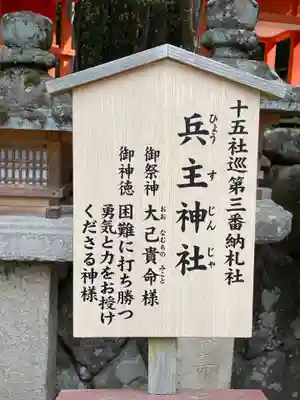 十五社巡第三番納札社
兵主神社
ひょうすじんじゃ
御祭神 大己貴命様
おおなむちのみこと
御神徳 困難に打ち勝つ
勇気と力をお授け
くださる神様